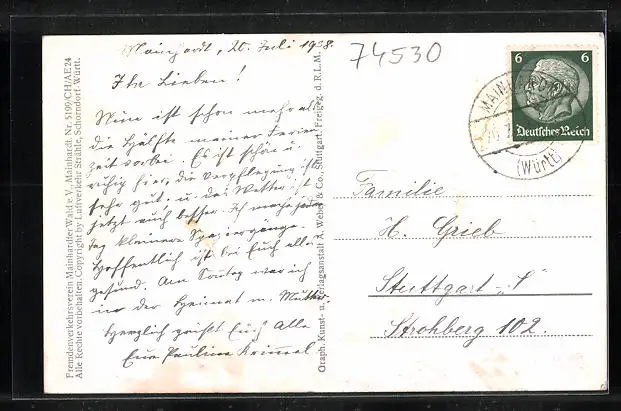 Mainhardt, 20. Juli 1938.
74530
Ihr Lieben!
Nun ist schon mehr als
die Hälfte meiner Ferien-
zeit vorbei. Es ist schön u.
ruhig hier, die Verpflegung ist
sehr gut, u. das Wetter ist
jetzt auch besser. Ich mache jeden
Tag kleinere Spaziergänge.
Hoffentlich ist bei Euch alles
gesund. Am Sonntag war ich
in der Heimat m. Mutter.
Herzlich grüßt Euch Alle
Eure Pauline
Fremdenverkehrsverein Mainhardter Wald e. V., Mainhardt. Nr. 5199/CH/AE24
Alle Rechte vorbehalten. Copyright by Luftverkehr Strähle, Schorndorf-Württ.
Graph. Kunst- u. Verlagsanstalt A. Weber & Co., Stuttgart. Freigeg. d. R.L.M.
6 6
Deutsches Reich
MAINHARDT
(Württ)
Familie
H. Grieb
Stuttgart-S
Strohberg 102.